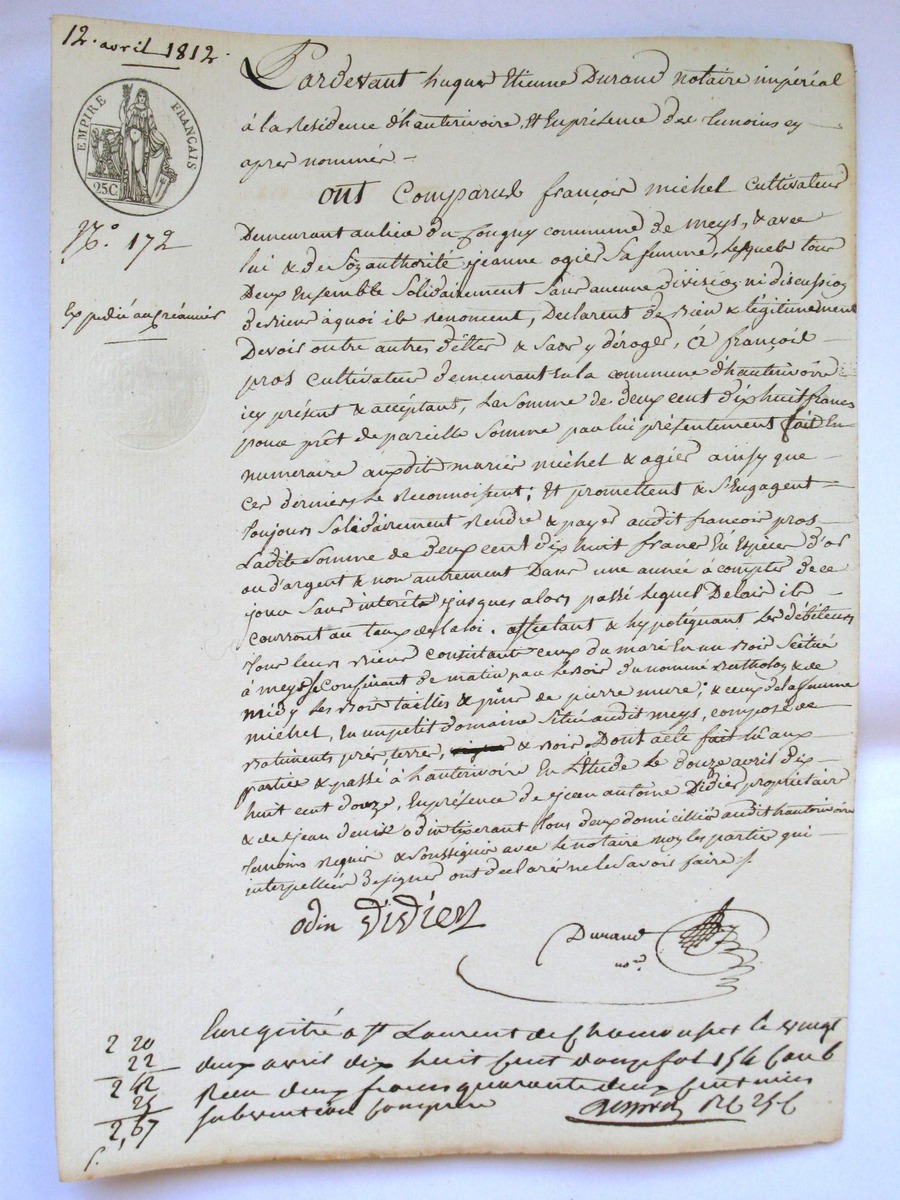 12. avril 1812.
EMPIRE FRANÇAIS
25C
N.o 172
Expédié au créancier
Pardevant hugue Etienne Durand notaire impérial
à la Residence d'hauterivoire, Et Enprésence des temoins cy
apres nommés
ont Comparus françois michel Cultivateur
Demeurant aulieu du commune de meys, & avec
lui & de Son authorité jeanne ogier Sa femme, Lesquels tous
Deux Ensemble Solidairement Sans aucune division ni discussion
de Biens à quoi ils renoncent, Declarent de Bien & légitimement
Devoir outre autres dettes & Sans y déroger, à françois
pros cultivateur demeurant En la commune d'hauterivoire
icy présent & acceptant, La Somme de deux cent dix huit francs
pour prêt de pareille Somme par lui présentement fait En
numeraire auxdits mariés michel & ogier ainsy que
ces derniers Le Reconnoissent; Et promettent & S'Engagent
toujours Solidairement Rendre & payer audit francois pros
Ladite Somme de deux cent dix huit francs En Espèces d'or
ou d'argent & non autrement Dans une année à compter de ce
jour Sans interêts jusques alors, passé Lequel Delai ils
courront au taux de la loi. affectant & hypotéquant Les débiteurs
tous leurs Biens consistants ceux du mari En un Bois Scitué
à meys Se Confinant de matin par Le Bois du nommé & de
midy Les Bois taillés & de pierre mure; & ceux de la femme
michel, En un petit domaine Situé audit meys, composé de
Batiments, prés, terres, & Bois. Dont acte fait Lu aux
parties & passé à hauterivoire En L'Etude Le douze avril dix
huit cent douze, En présence de jean antoine Didier propriétaire
& de jean denis odin tisserant tous deux domiciliés audit hauterivoire
temoins Requis & Soussignés avec le notaire non les parties qui
interpellées de signer ont declaré ne le Savoir faire /.
odin Didier
Durand
no.re
2 20
22
2 42
25
2,67
f.
Enregistré a St Laurent de Chamousset le vingt
deux avril dix huit cent douze fol 154 C
Reçu deux francs quarante deux centimes
subvention comprise